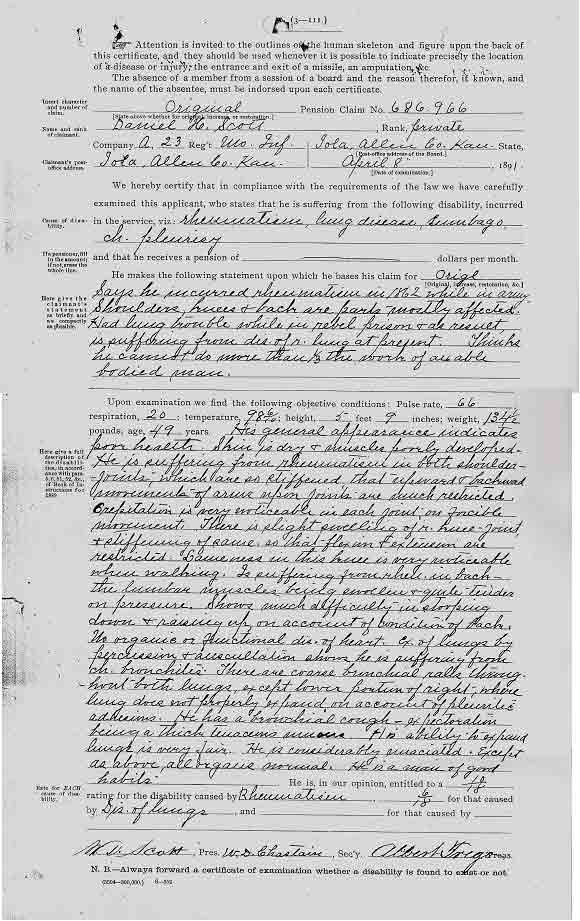 (3—111.)
Attention is invited to the outlines of the human skeleton and figure upon the back of
this certificate, and they should be used whenever it is possible to indicate precisely the location
of a disease or injury, the entrance and exit of a missile, an amputation, &c.
The absence of a member from a session of a board and the reason therefor, if known, and
the name of the absentee, must be indorsed upon each certificate.
Insert character and number of claim.
Original Pension Claim No. 686.966
[State above whether for original, increase, or restoration.]
Name and rank of claimant.
Daniel H. Scott, Rank, private
Company A, 23 Reg't Mo. Inf. Iola, Allen Co. Kan. State,
[Post-office address of the Board.]
Claimant's post-office address.
Iola, Allen Co. Kan. April 8, 1891.
[Date of examination.]
We hereby certify that in compliance with the requirements of the law we have carefully
examined this applicant, who states that he is suffering from the following disability, incurred
Cause of disability.
in the service, viz: rheumatism, lung disease, lumbago,
ch. pleurisy
If a pensioner, fill in the amount; if not, erase the whole line.
and that he receives a pension of dollars per month.
He makes the following statement upon which he bases his claim for Origl
[Original, increase, restoration, &c.]
Here give the claimant's statement as briefly and as compactly as possible.
Says he incurred rheumatism in 1862 while in army
Shoulders, knees & back are parts mostly affected.
Had lung trouble while in rebel prison & as result
is suffering from dis. of r. lung at present. Thinks
he cannot do more than the work of an able
bodied man.
Upon examination we find the following objective conditions: Pulse rate, 66
respiration, 20; temperature, 98; height, 5 feet 9 inches; weight, 134½
pounds, age, 49 years. His general appearance indicates
Here give a full description of the disabilities, in accordance with
poor health. Skin is dry & muscles poorly developed.
He is suffering from rheumatism in both shoulder-
-joints, which are so stiffened that upward & backward
movements of arms upon joints are much restricted.
Crepitation is very noticeable in each joint, on forcible
movement. There is slight swelling of r. knee-joint
& stiffening of same, so that flexion & extension are
restricted. Lameness in this knee is very noticeable
when walking. Is suffering from rheu. in back—
the lumbar muscles being swollen & quite tender
on pressure. Shows much difficulty in stooping
down & raising up, on account of condition of back.
No organic or functional dis. of heart. Ex. of lungs by
percussion & auscultation shows he is suffering from
ch. bronchitis. There are coarse bronchial ralls throug-
-hout both lungs, except lower portion of right, where
lung does not properly expand on account of pleuritic
adhesions. He has a bronchial cough — expectoration
being a thick tenacious mucus. His ability to expand
lungs is very fair. He is considerably emaciated. Except
as above, all organs normal. He is a man of good
habits.
He is, in our opinion, entitled to a
Rate for EACH cause of disability.
rating for the disability caused by Rheumatism, for that caused
by Dis. of lungs, and for that caused by
Scott, Pres. W. D. Chastain, Sec'y. Albert Treas.
N. B.—Always forward a certificate of examination whether a disability is found to exist or not.